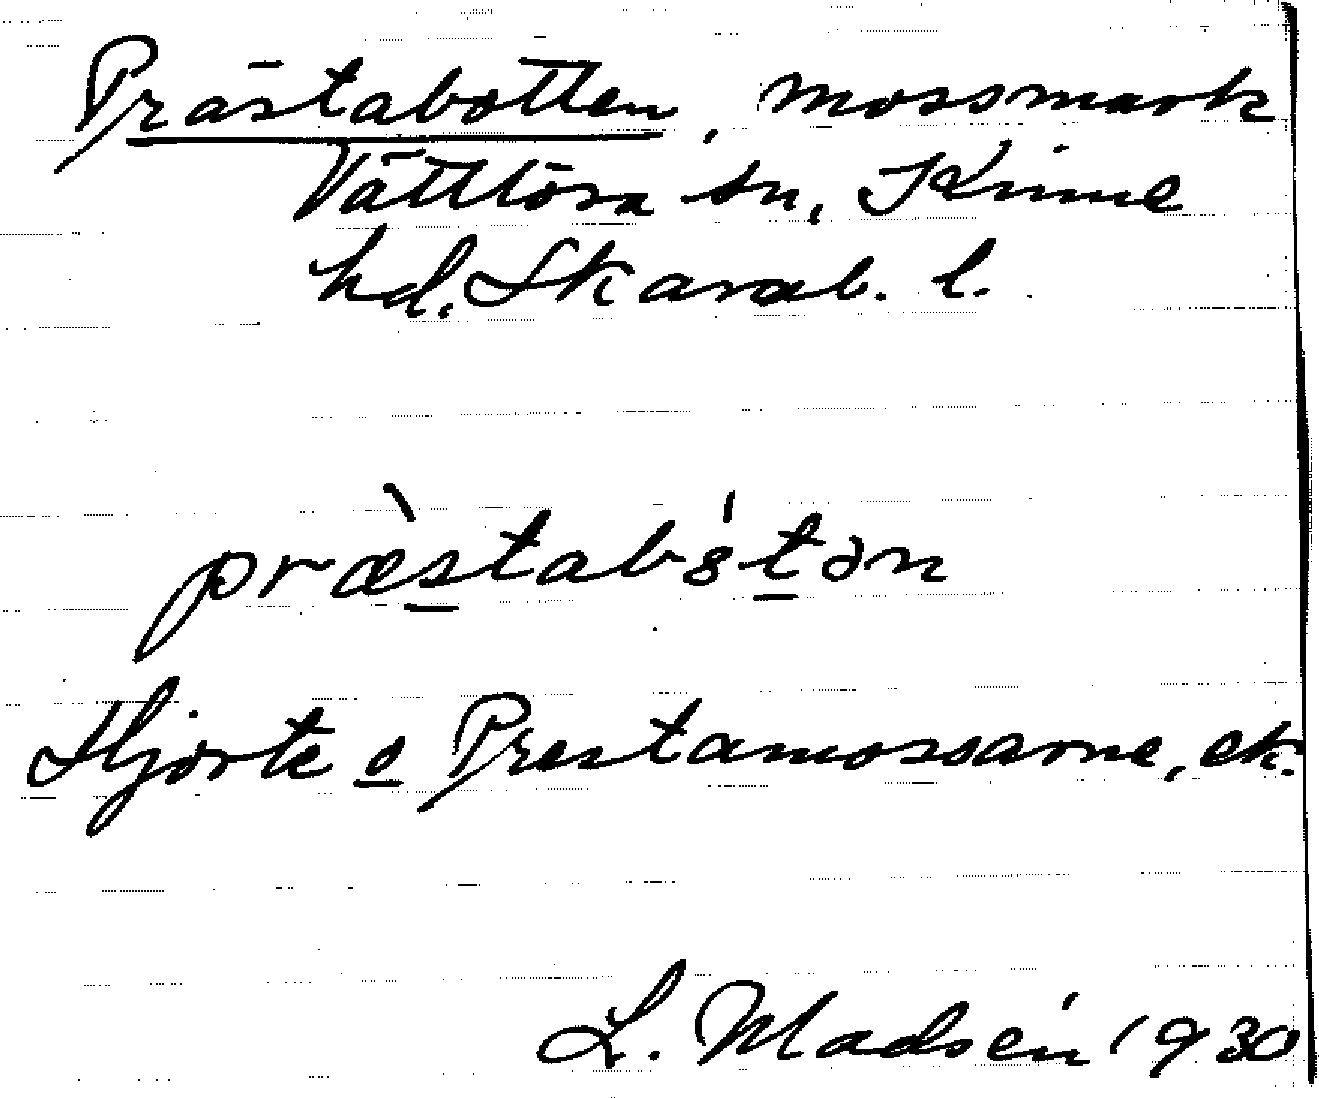 Prästabotten, mossmark
Vättlösa sn, Kinne
hd. Skarab. l.
præ̀stabȣ́tən
Hjorte o Prestamossarne, ek.
L. Madsén 1930